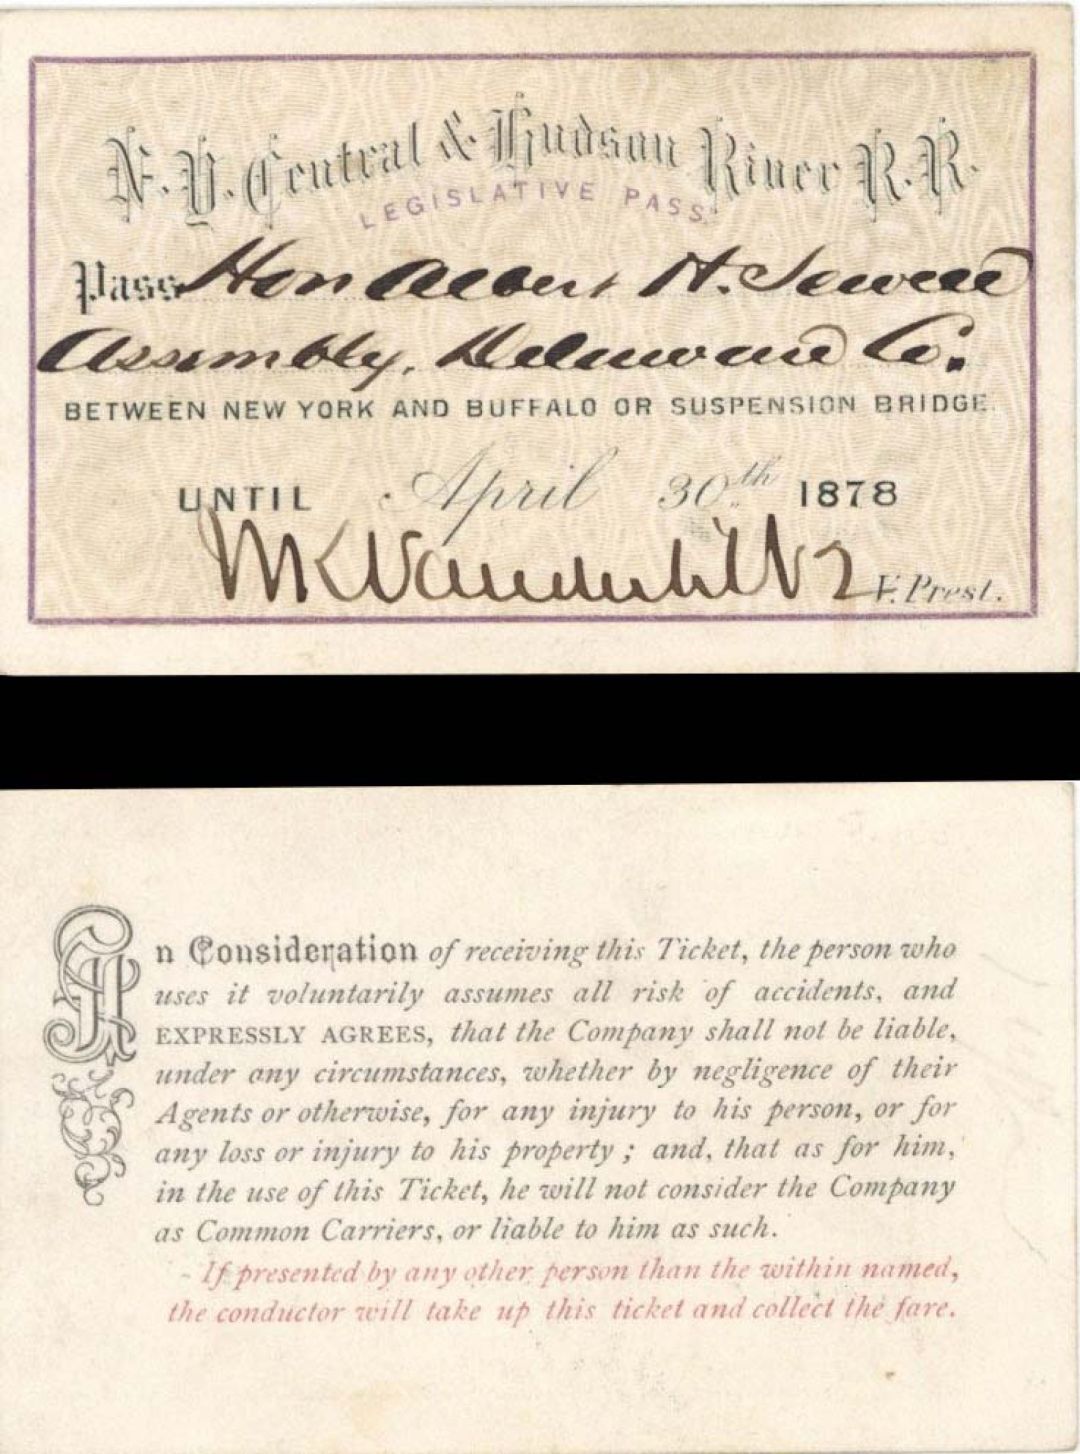 N. Y. Central & Hudson River R. R.
LEGISLATIVE PASS
Pass Hon Albert H. Sewell
Assembly, Delaware Co.
BETWEEN NEW YORK AND BUFFALO OR SUSPENSION BRIDGE.
UNTIL April 30th 1878
Wm H Vanderbilt V. Prest.
In Consideration of receiving this Ticket, the person who
uses it voluntarily assumes all risk of accidents, and
EXPRESSLY AGREES, that the Company shall not be liable,
under any circumstances, whether by negligence of their
Agents or otherwise, for any injury to his person, or for
any loss or injury to his property; and, that as for him,
in the use of this Ticket, he will not consider the Company
as Common Carriers, or liable to him as such.
If presented by any other person than the within named,
the conductor will take up this ticket and collect the fare.